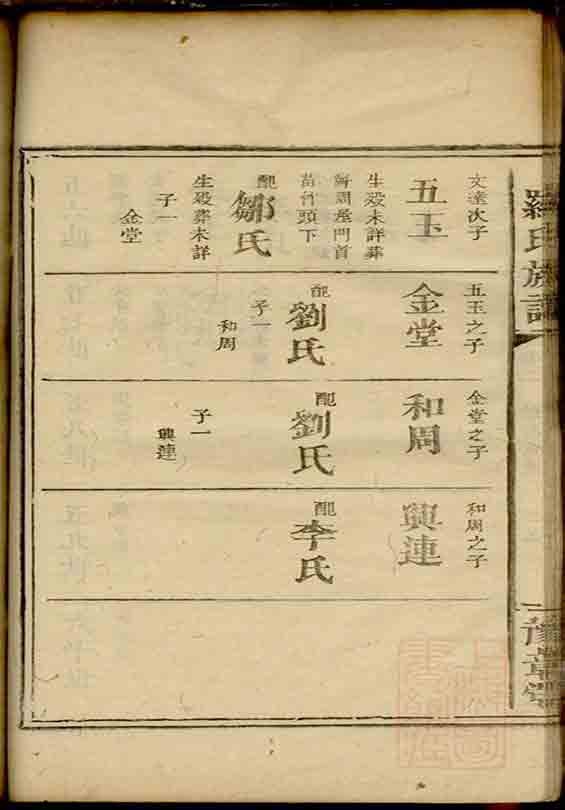 羅氏族譜
豫章堂
文達次子
五玉
生殁未詳葬
苗竹頭下
配
鄒氏
生殁葬未詳
子一
金堂
五玉之子
金堂
配
劉氏
子一
和周
金堂之子
和周
配
劉氏
子一
興連
和周之子
興連
配
李氏